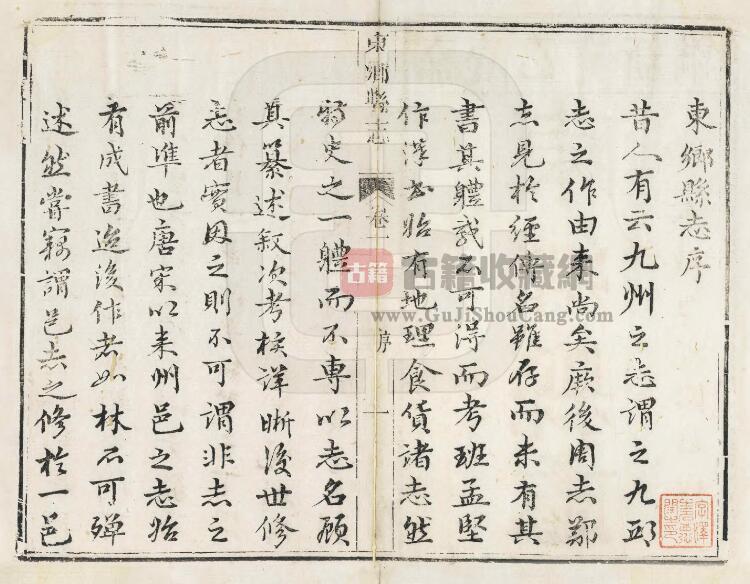 東鄉縣志序
昔人有云九州之志謂之九邱
志之作由来尚矣厥後周志鄭
志見於經傳名雖存而未有其
書其體裁不可得而考班孟堅
作漢書始有地理食貨諸志然
東鄉縣志
卷一
序
一
特史之一體而不專以志名顧
其纂述叙次考核詳晰後世修
志者實因之則不可謂非志之
前準也唐宋以来州邑之志始
有成書迨後作者如林不可殫
述然嘗竊謂邑志之修於一邑
古籍
古籍收藏網
www.GuJiShouCang.com